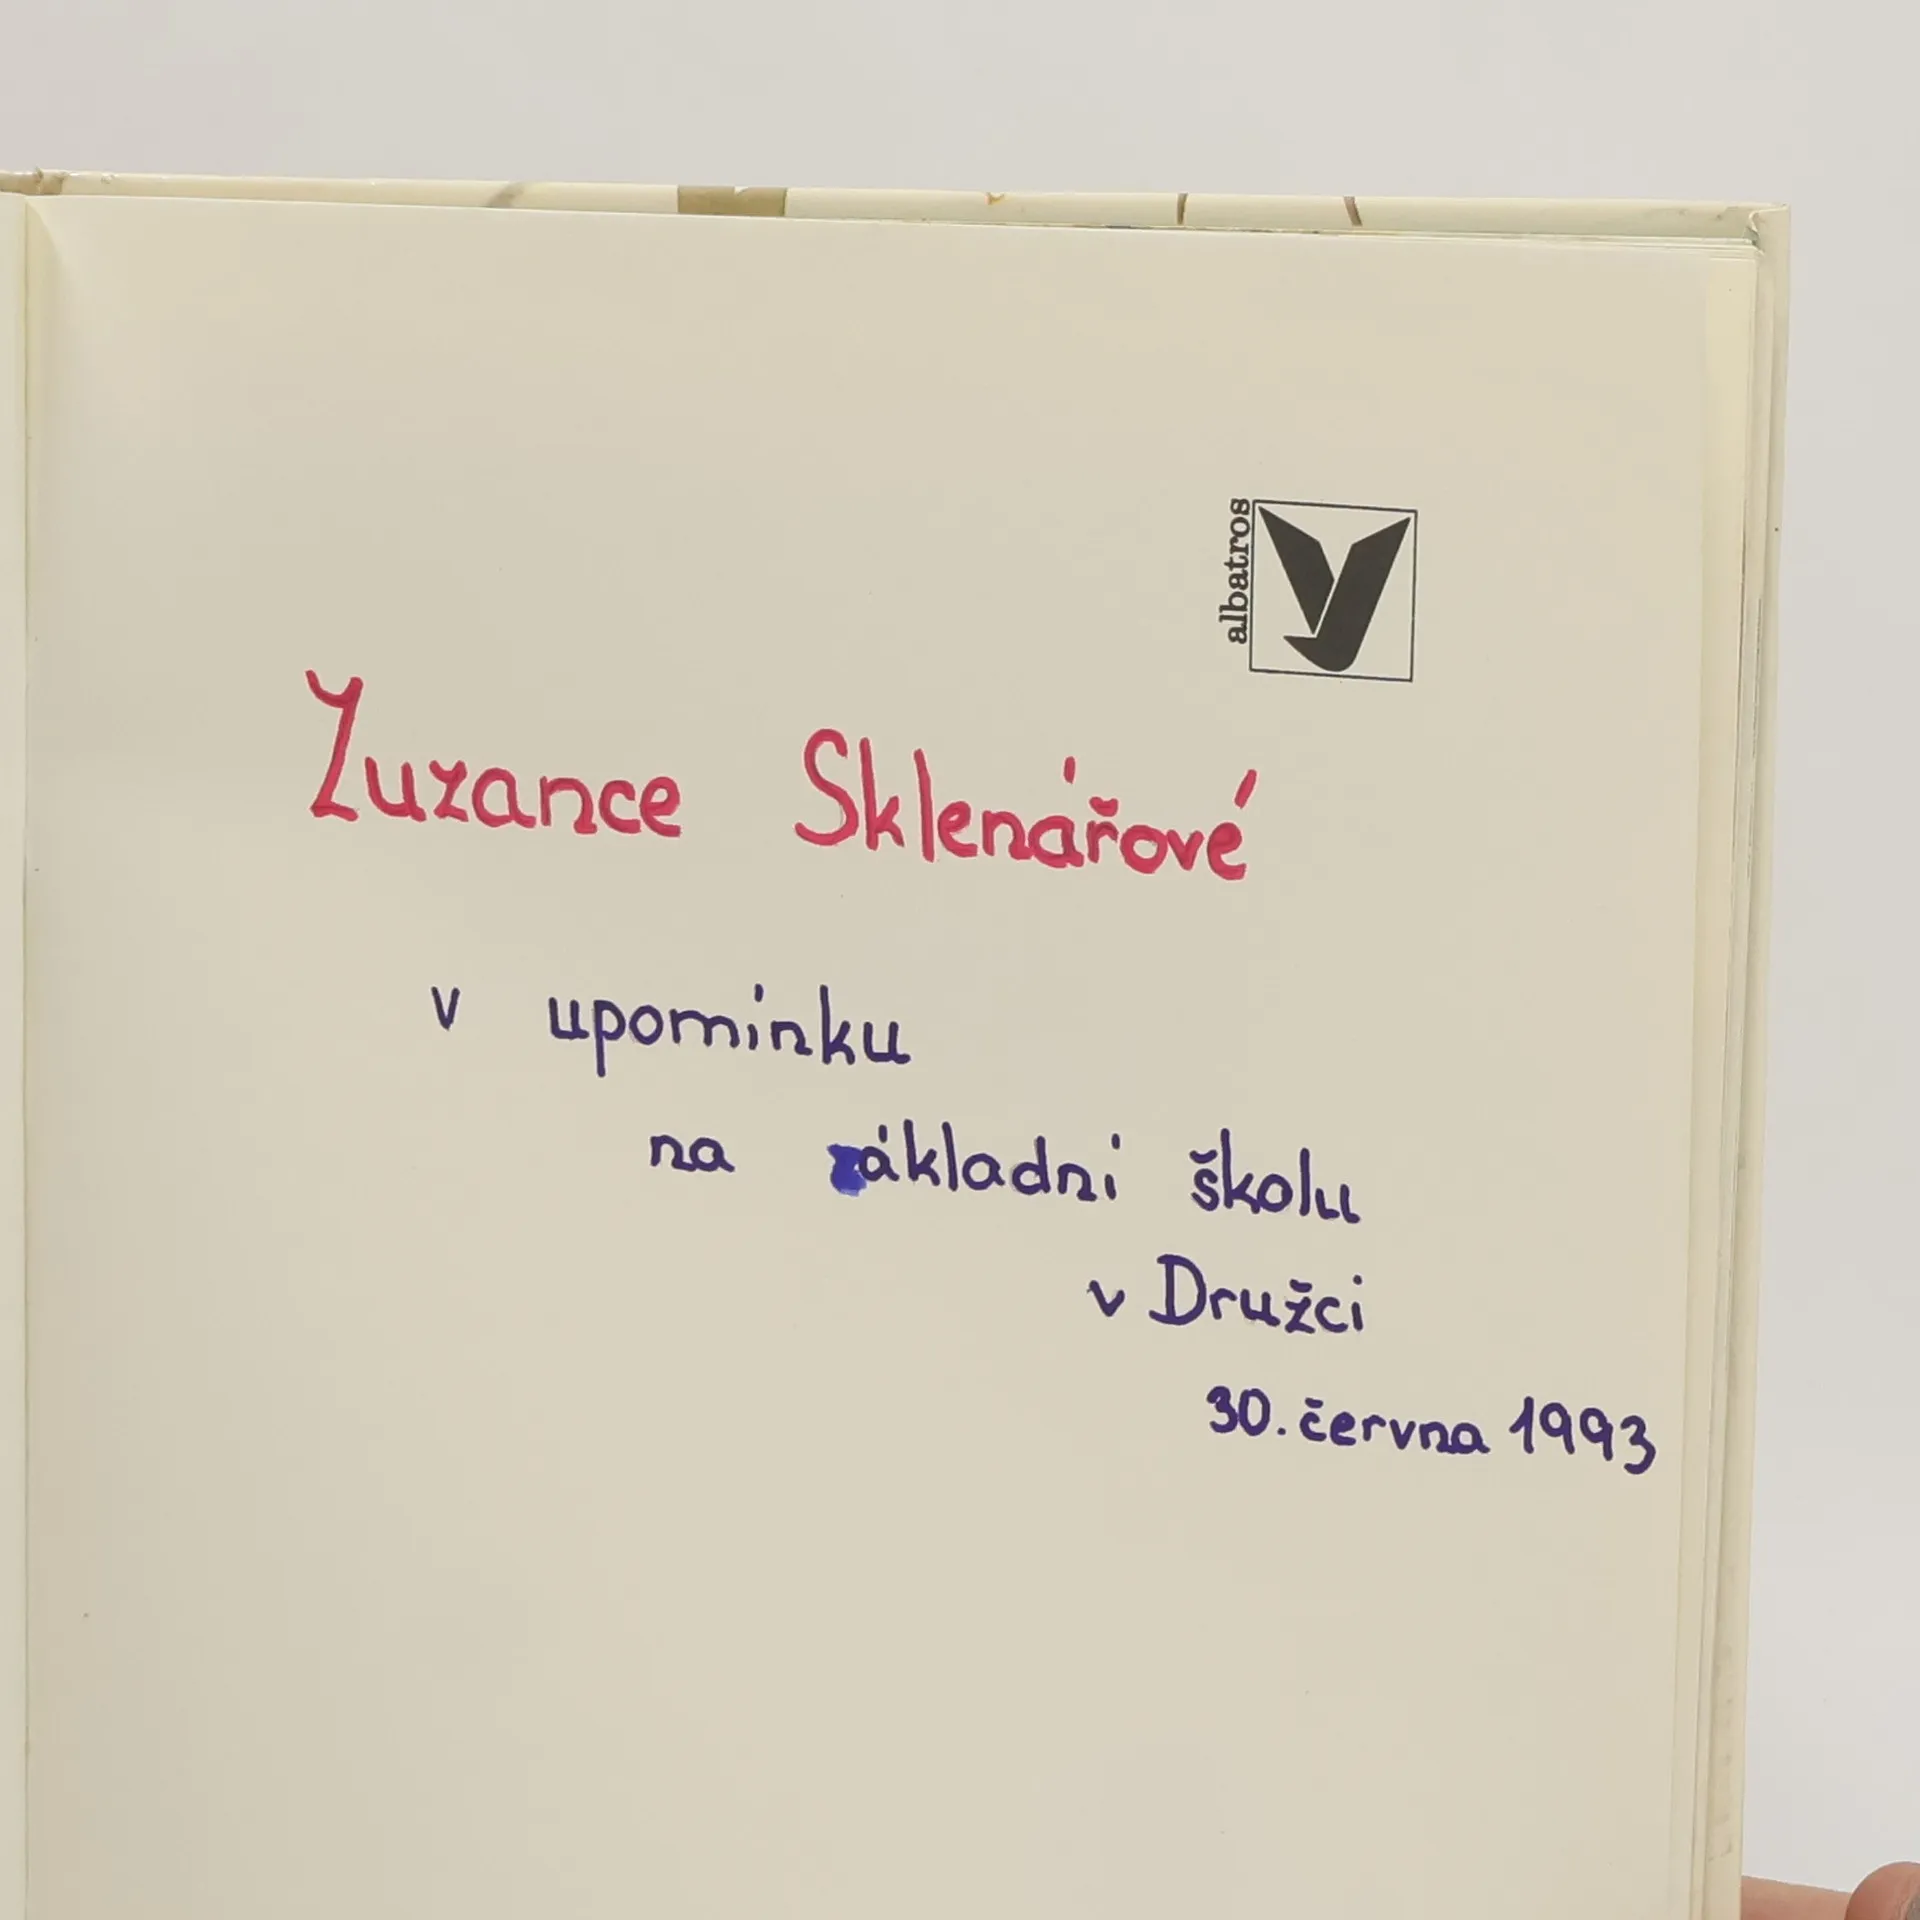 albatros
Zuzance Sklenářové
v upomínku
na základní školu
v Družci
30. června 1993